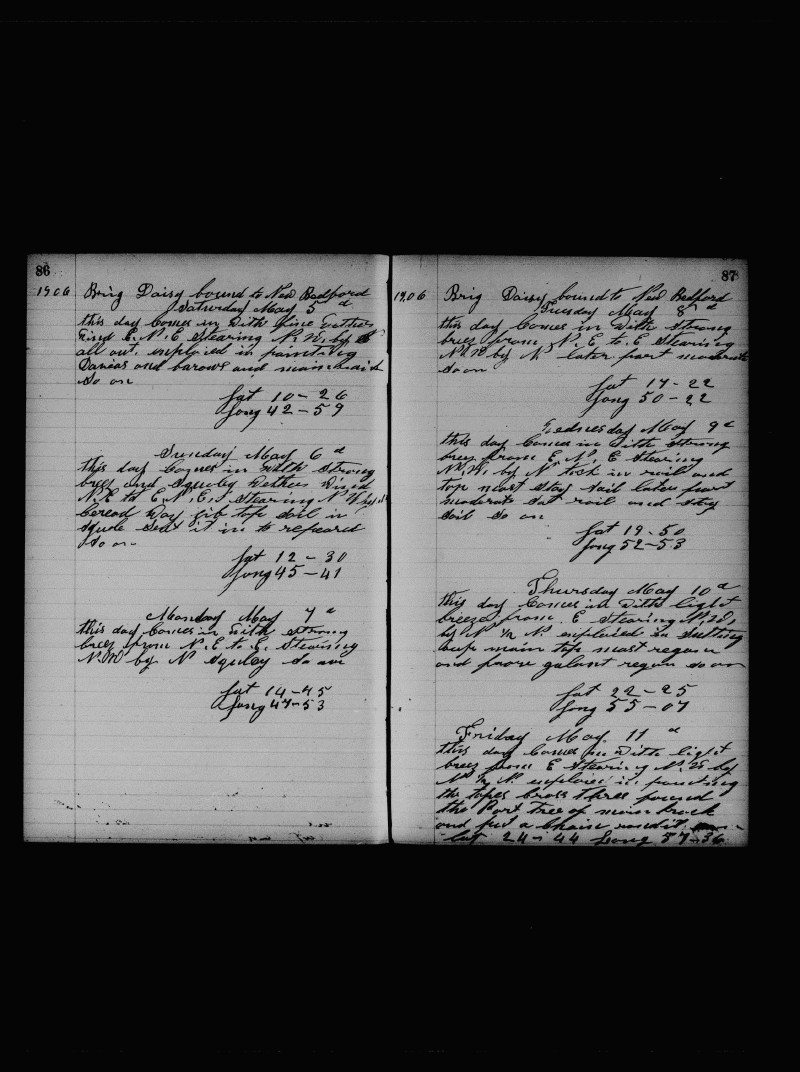 86
1906 Brig Daisy bound to New Bedford
Saturday May 5 d
this day Comes in With fine Wether
Wind E. N. E Stearing N. W. by
all out. imployed in painting
and
So on
Lat 10 - 26
Long 42 - 59
Sunday May 6 d
this day Comes in With Strong
breez and Squley Wether Wind
N. E to E. N. E. Stearing N W by
Way jib top Sail in
Squle Sent it in to repeard
So on
Lat 12 - 30
Long 45 - 41
Monday May 7 d
this day Comes in With Strong
breez from N. E to E. Stearing
N. W by N Squley So on
Lat 14 - 45
Long 47 - 53
87
1906 Brig Daisy bound to New Bedford
Tuesday May 8 d
this day Comes in With Strong
breez from N. E. to. E Stearing
N. W by N later part moderate
So on
Lat 17 - 22
Long 50 - 22
Wednesday May 9 d
this day Comes in With Strong
breez from E N. E Stearing
N. W. by N tock in and
top mast Stay Sail later part
moderate Sat and Stay
Sail So on
Lat 19 - 50
Long 52 - 53
Thursday May 10 d
this day Comes in With light
breeze from E Stearing N. W.
by N ½ N imployed in Sutting
up main top mast
and galant So on
Lat 22 - 25
Long 55 - 07
Friday May. 11 d
this day Comes in With light
breez from E Stearing N. W by
N ½ N. in
the Cross three
the Port Tree of main
and put a Chain
Lat 24 - 44 Long 57 - 36